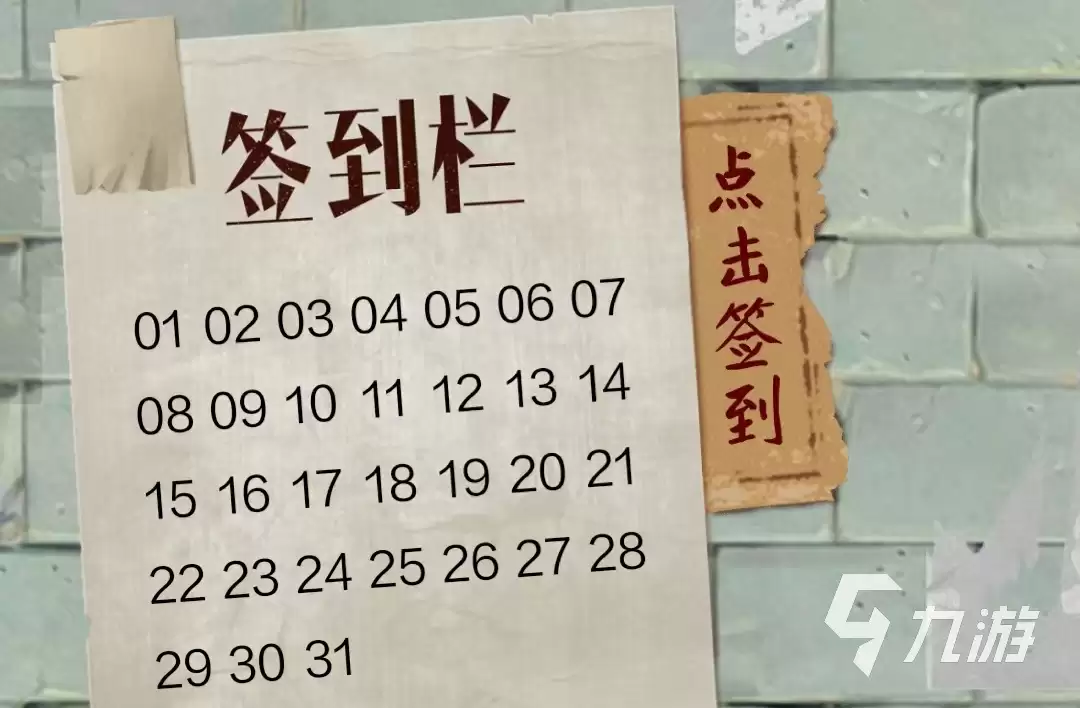 签到栏
01 02 03 04 05 06 07
08 09 10 11 12 13 14
15 16 17 18 19 20 21
22 23 24 25 26 27 28
29 30 31
点击签到
九游